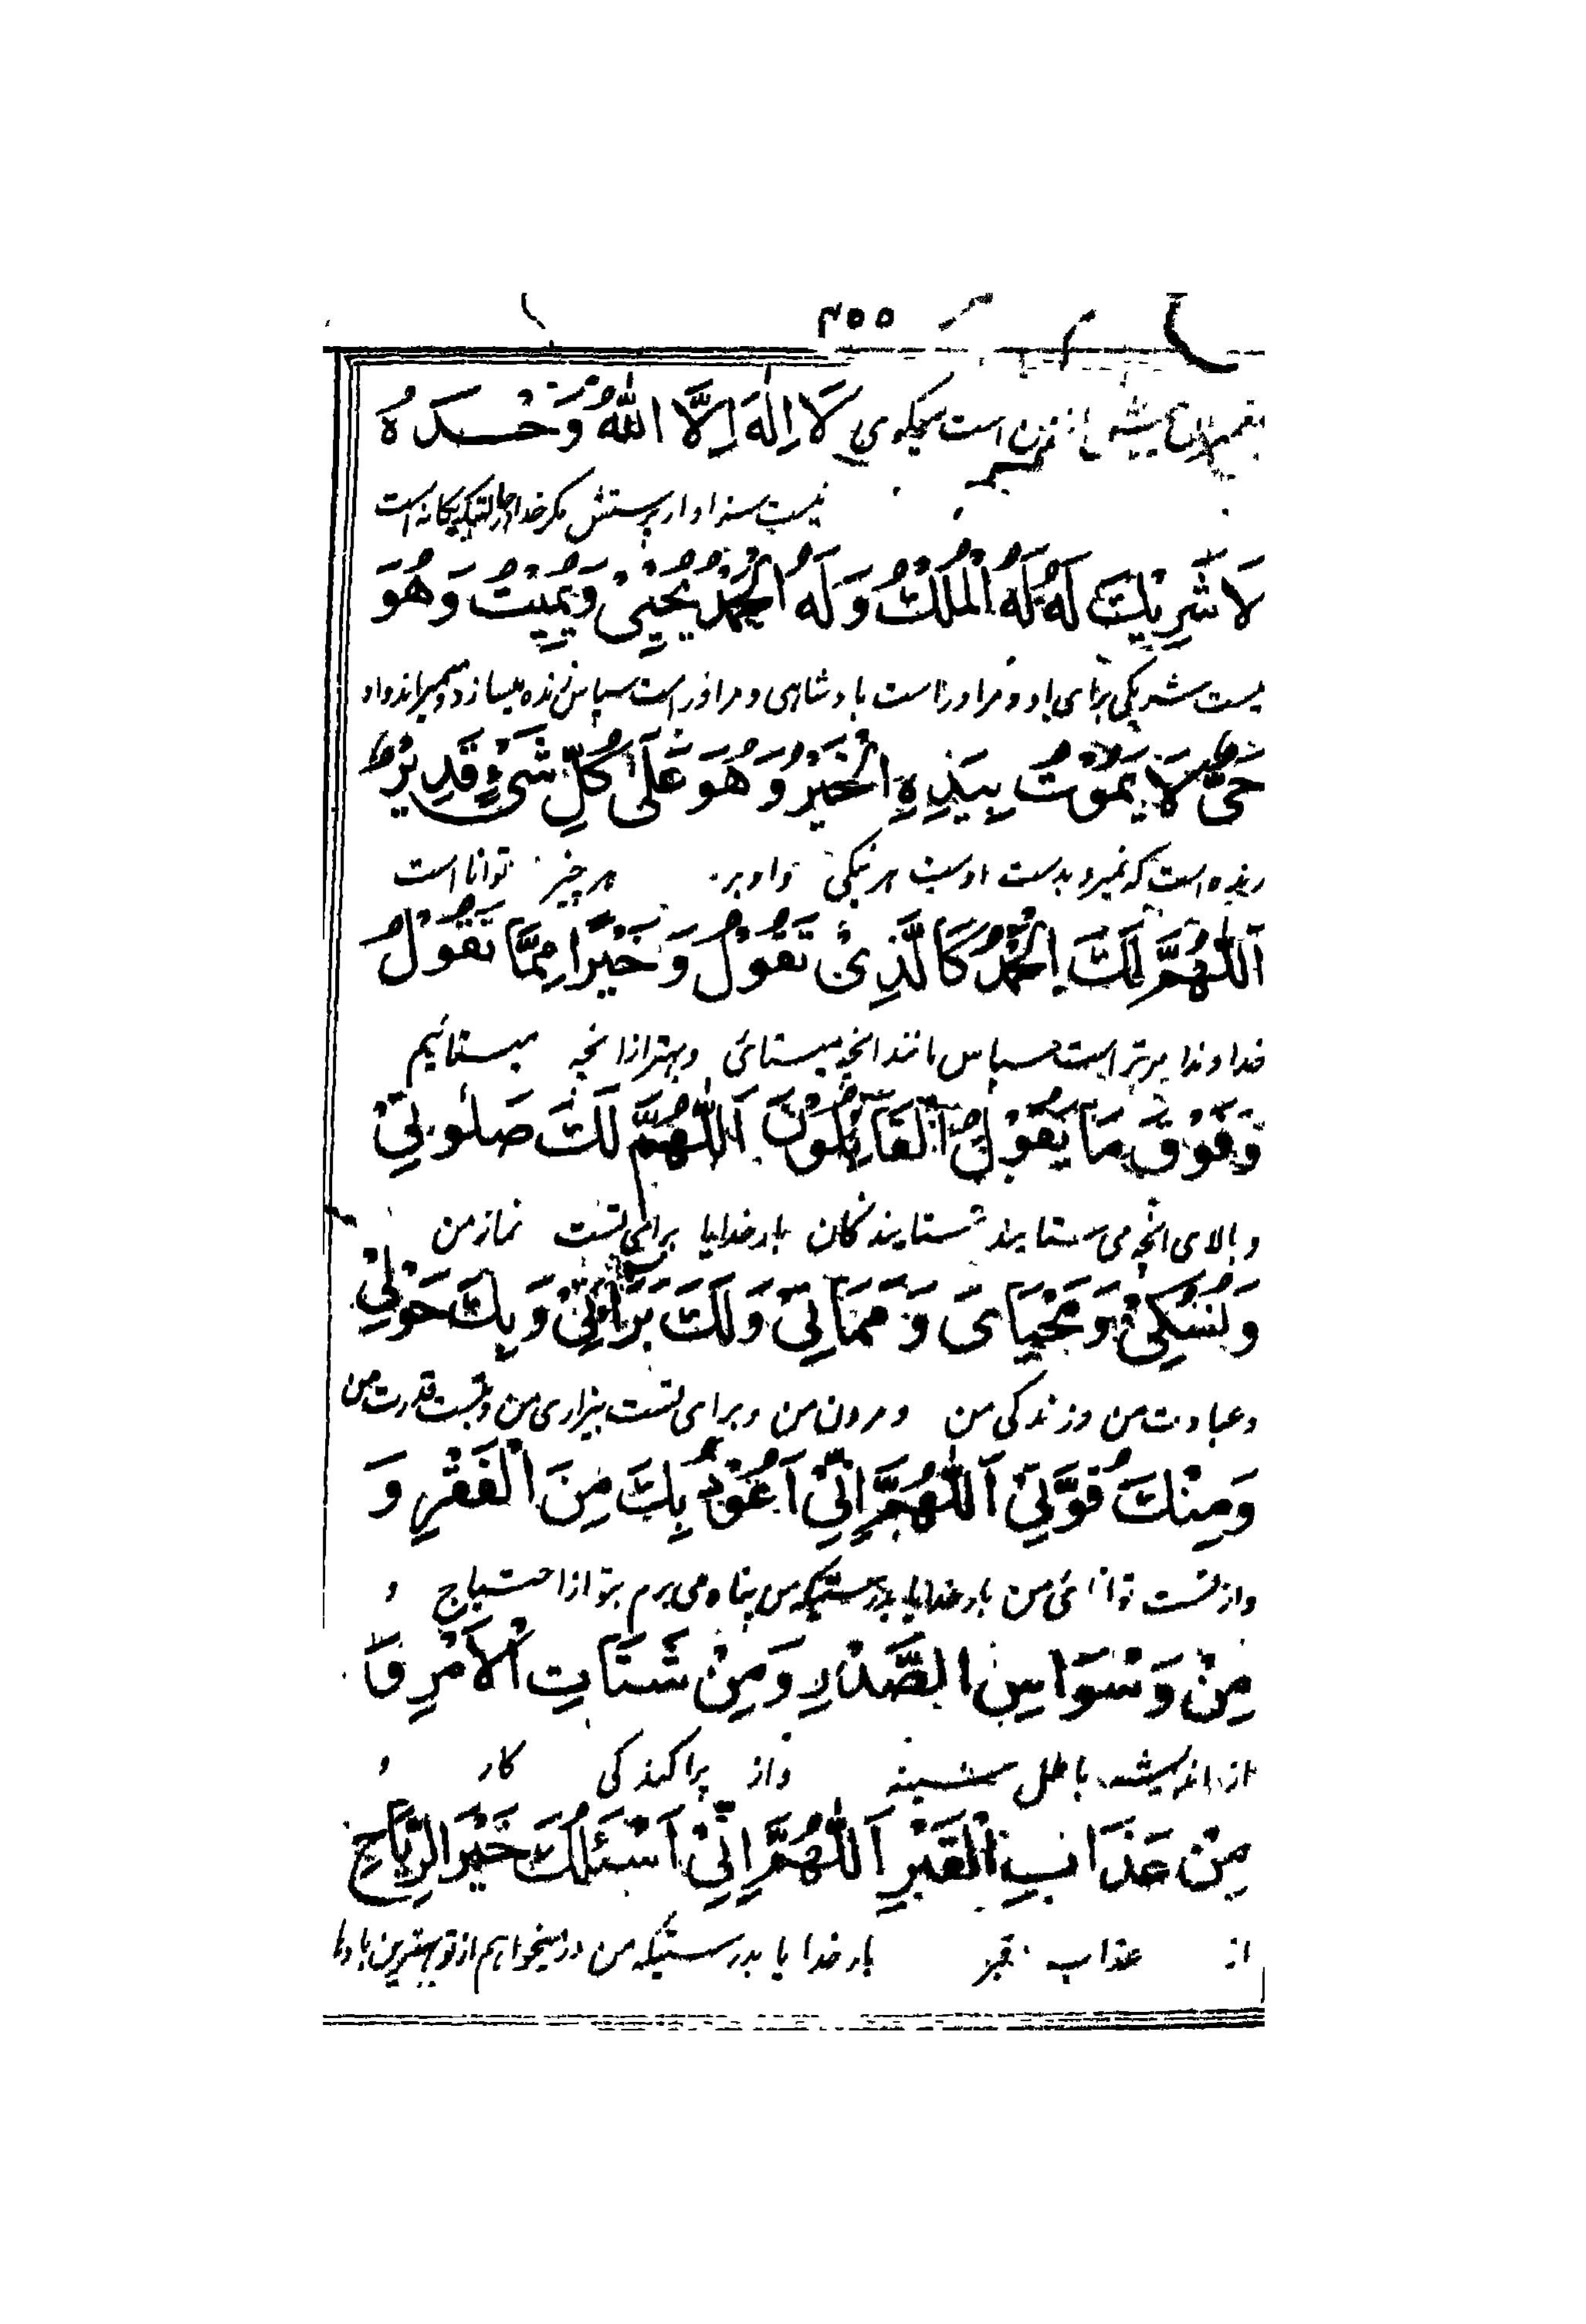 ۴۵۵
از من است میگوی لَا اِلٰهَ اِلَّا اللّٰهُ وَحْدَهُ
نیست سزاوار پرستش مگر خدا یگانه است
لَا شَرِیْكَ لَهُ لَهُ الْمُلْكُ وَ لَهُ الْحَمْدُ یُحْیِیْ وَ یُمِیْتُ وَ هُوَ
نیست شریکی برای او و مر او راست بادشاهی و مر او راست سپاس زنده میسازد و میمیراند و او
حَیٌّ لَا یَمُوْتُ بِیَدِهِ الْخَیْرُ وَ هُوَ عَلٰی كُلِّ شَیْءٍ قَدِیْرٌ ط
زنده است که نمیرد بدست اوست هر نیکی و او بر هر چیز توانا است
اَللّٰهُمَّ لَكَ الْحَمْدُ كَالَّذِیْ تَقُوْلُ وَ خَیْرًا مِمَّا نَقُوْلُ
خداوندا مر ترا است سپاس مانند انچه میستائی و بهتر از انچه میستائیم
وَ فَوْقَ مَا یَقُوْلُ الْقَآئِلُوْنَ اَللّٰهُمَّ لَكَ صَلٰوتِیْ
و بالای انچه می ستایند ستایندگان بار خدایا برای تست نماز من
وَ نُسُكِیْ وَ مَحْیَایَ وَ مَمَاتِیْ وَ لَكَ بَرَآئَتِیْ وَ بِكَ حَوْلِیْ
و عبادت من و زندگی من و مردن من و برای تست بیزاری من و بتست قدرت من
وَ مِنْكَ قُوَّتِیْ اَللّٰهُمَّ اِنِّیْ اَعُوْذُ بِكَ مِنَ الْفَقْرِ وَ
و از تست توانائی من بار خدایا بدرستیکه من پناه می برم بتو از احتیاج و
مِنْ وَسْوَاسِ الصَّدْرِ وَ مِنْ شَتَاتِ الْاَمْرِ وَ
از اندیشه باطل سینه و از پراکندگی کار و
مِنْ عَذَابِ الْقَبْرِ اَللّٰهُمَّ اِنِّیْ اَسْئَلُكَ خَیْرَ الرِّیَاحِ
از عذاب قبر بار خدایا بدرستیکه من در میخواهم از تو بهترین بادها